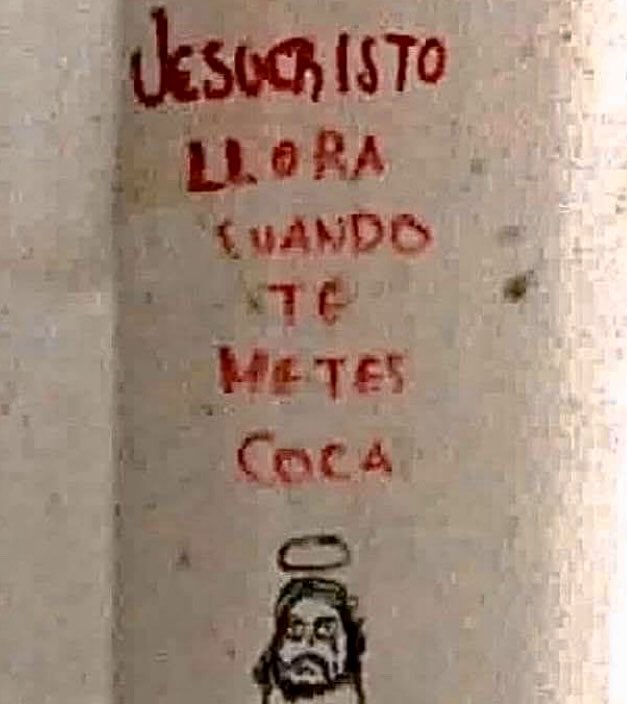 JESUCRISTO
LLORA
CUANDO
TE
METES
COCA